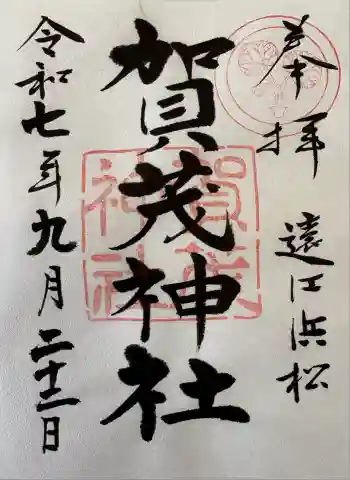 奉拝
遠江浜松
賀茂神社
賀茂
神社
令和七年九月二十二日